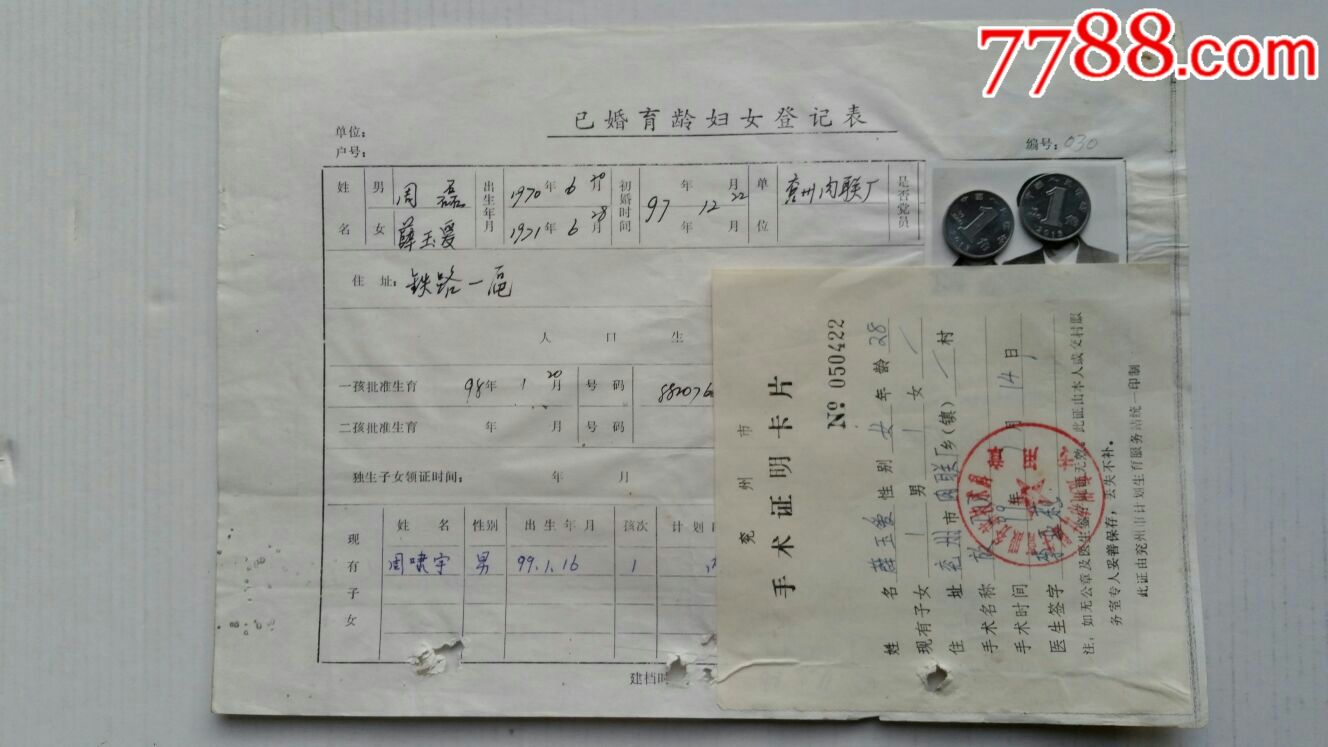 7788.com
已婚育龄妇女登记表
单位：
户号：
编号：030
姓名 男 周磊 出生年月 1970年6月20 初婚时间 97年12月22 单位 兖州肉联厂 是否党员
女 薛玉爱 1971年6月28 年 月
住 址：铁路一宿
人 口 生
一孩批准生育 98年1月20 号 码 882076
二孩批准生育 年 月 号 码
独生子女领证时间： 年 月
现有子女 姓 名 性别 出生年月 孩次 计划
周啸宇 男 99.1.16 1
建档时
兖 州 市
手术证明卡片
№ 050422
姓 名 薛玉爱 性 别 女 年 龄 28
现有子女 1 男 1 女 /
住 址 兖州 市 肉联厂 乡（镇） / 村
手术名称
手术时间 99 年 月 14 日
医生签字
注：如无公章及医生签字证明无效。此证由本人或交村服
务室专人妥善保存，丢失不补。
此证由兖州市计划生育服务站统一印制
中国人民银行
1角
2013
中国人民银行
1角
2013